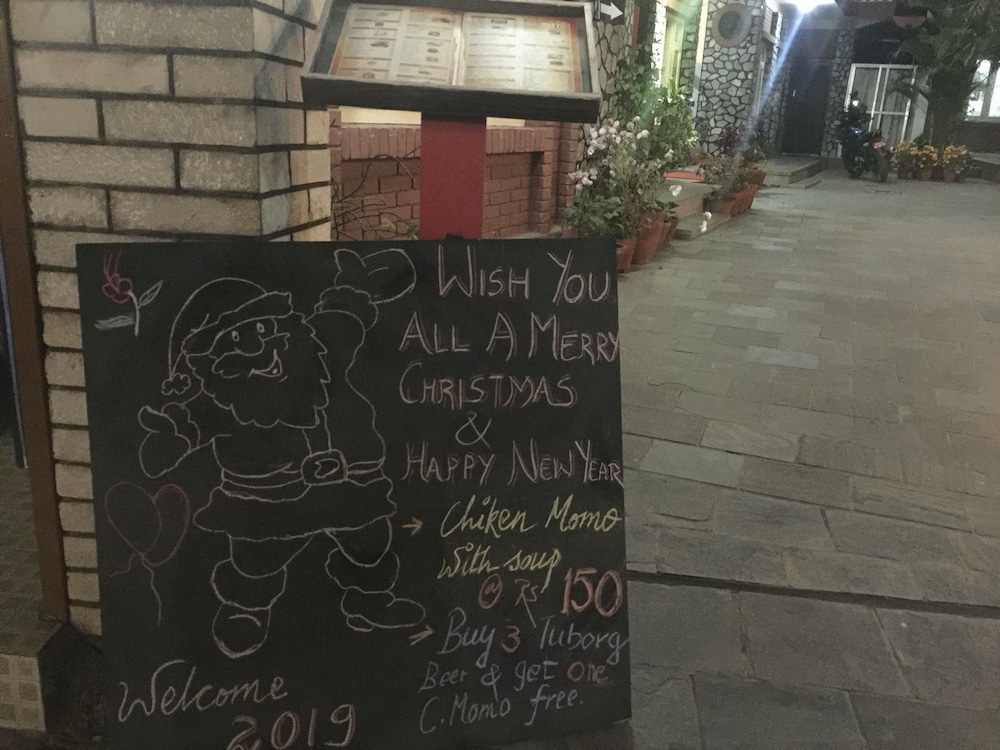 WISH YOU
ALL A MERRY
CHRISTMAS
&
HAPPY NEW YEAR
→ Chiken Momo
with soup
@ Rs 150
→ Buy 3 Tuborg
Beer & get one
C. Momo free.
Welcome
2019